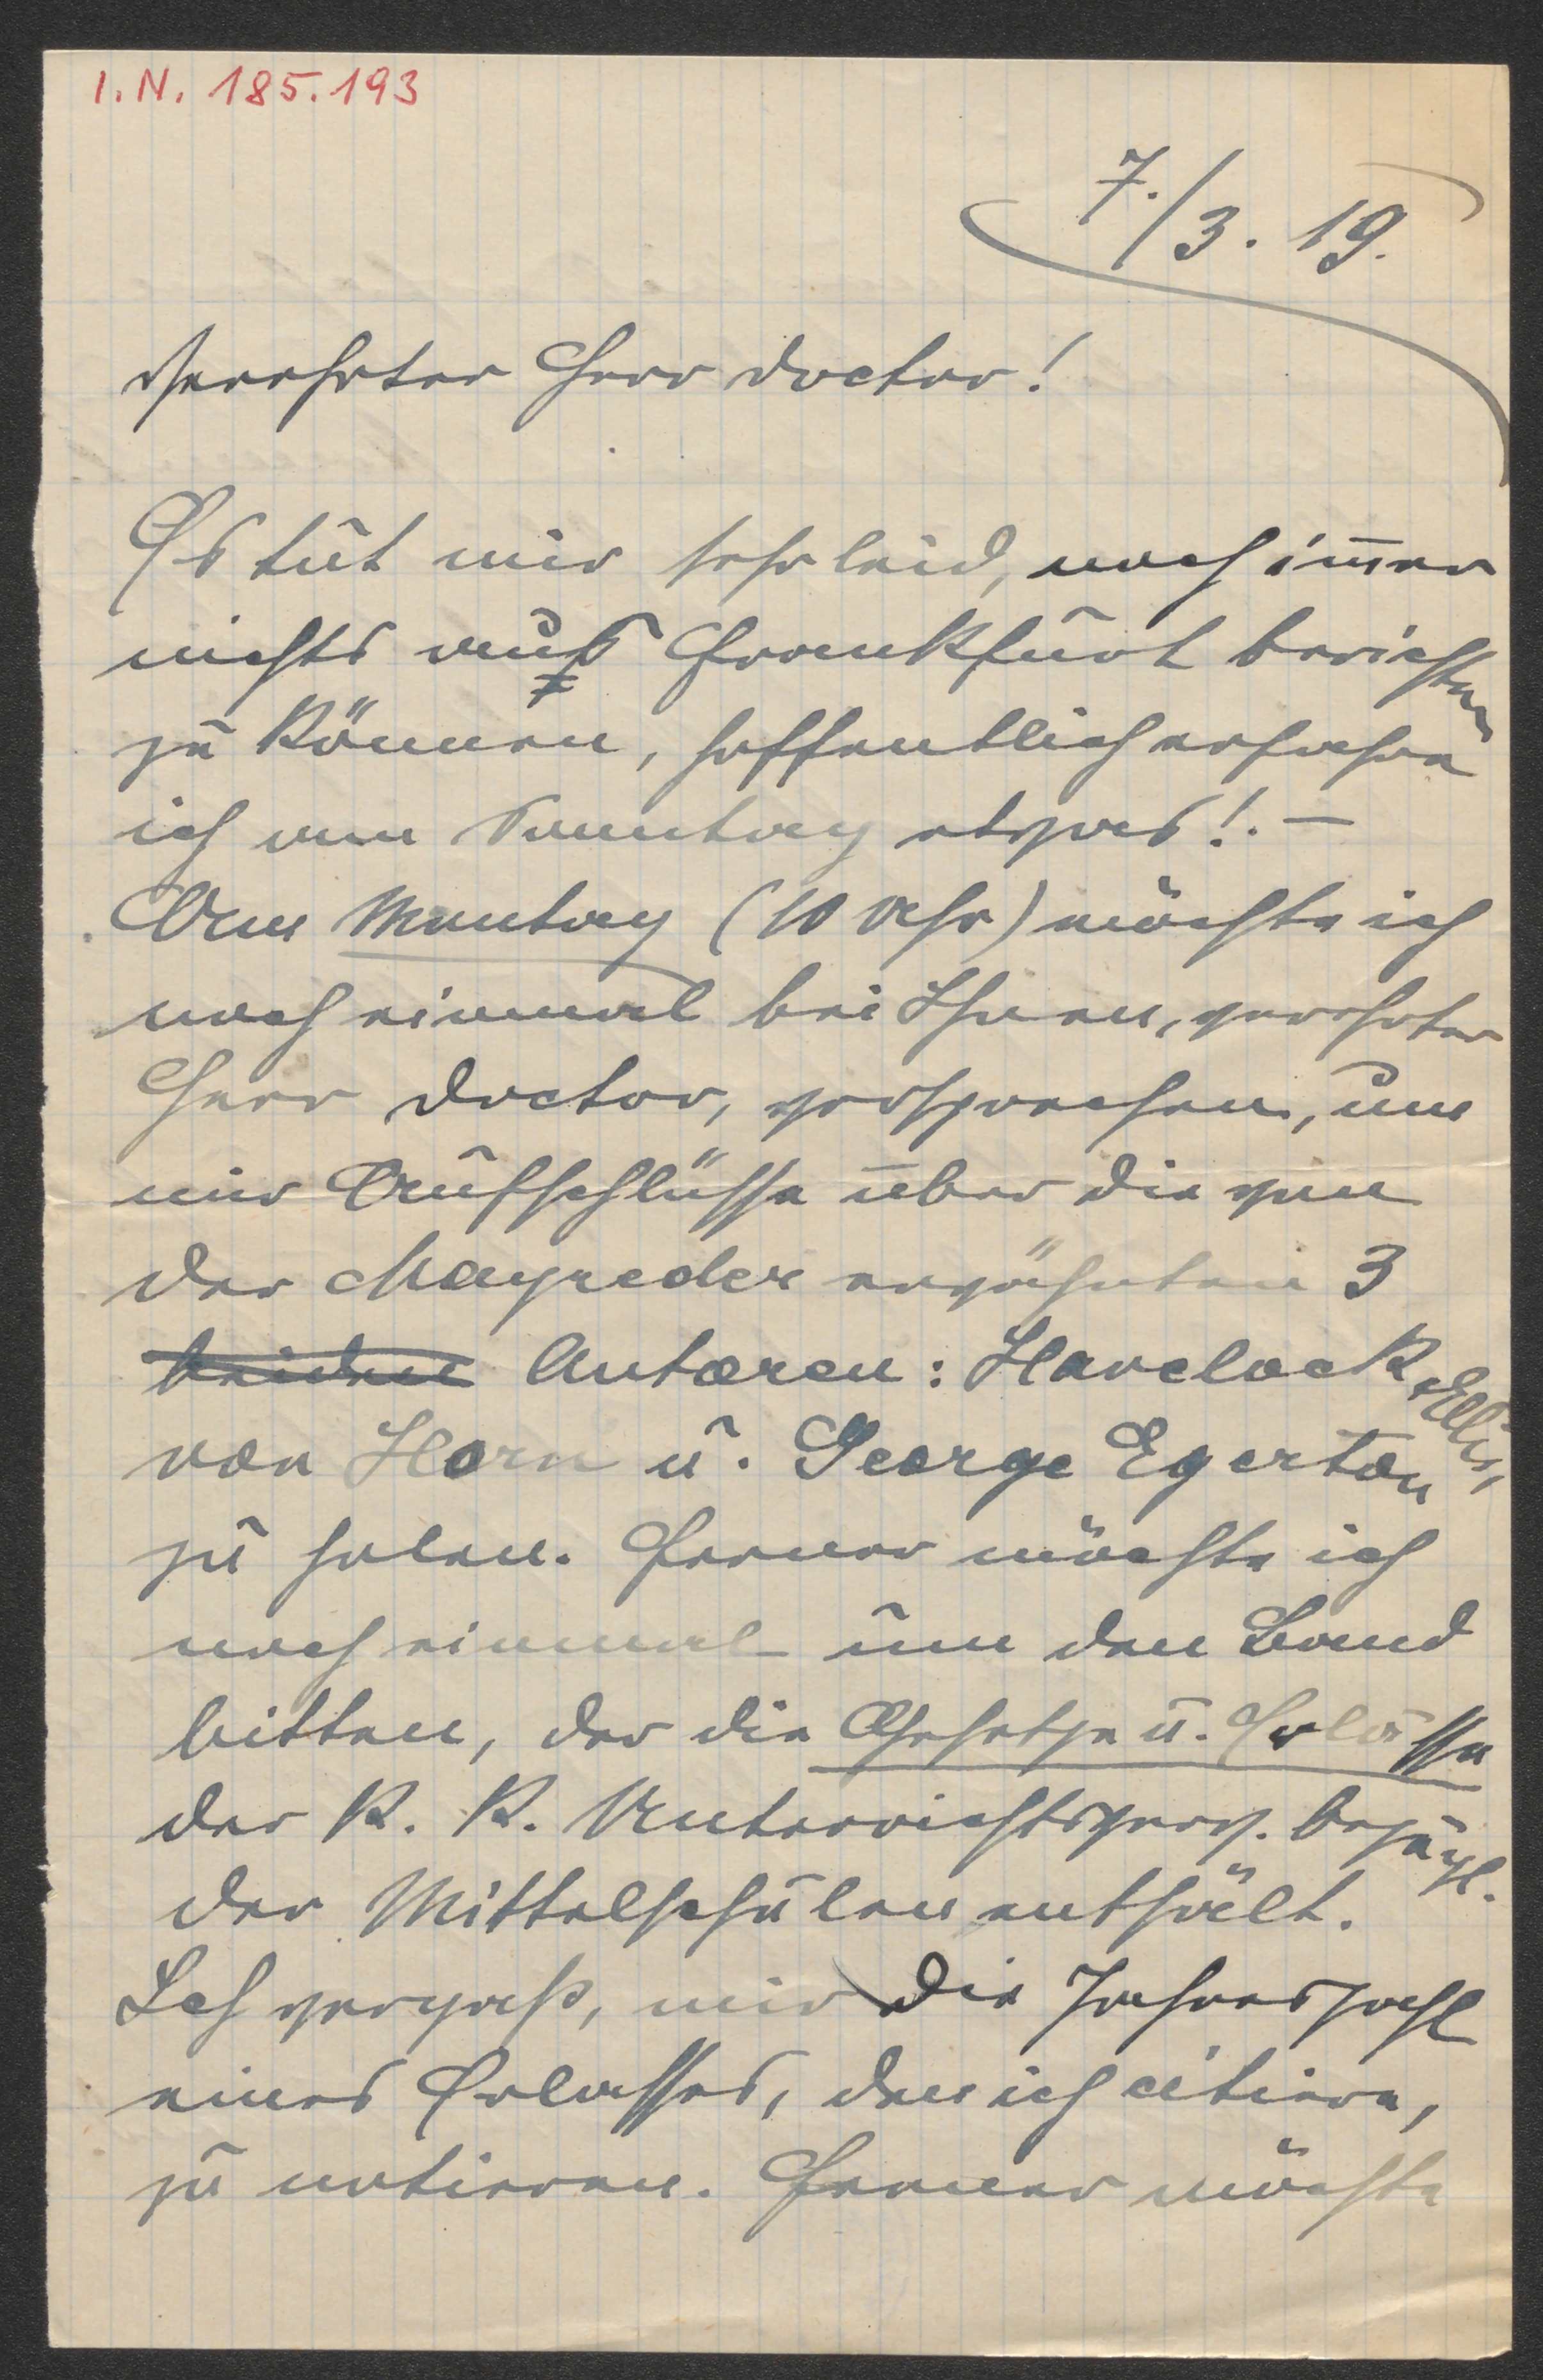 I.N. 185.193
7./3. 19.
Verehrter Herr Doctor!
Es tut mir sehr leid, noch im̅er
nichts aus Frankfurt berichten
zu können, hoffentlich erfahre
ich am Sonntag etwas! –
Am Montag (10 Uhr) möchte ich
noch einmal bei Ihnen, verehrter
Herr Doctor, vorsprechen, um
mir Aufschlüsse über die von
der Mayreder erwähnten 3
beiden Autoren: Havelock Ellis,
van Horn u. George Egerton
zu holen. Ferner möchte ich
noch einmal um den Band
bitten, der die Gesetze u. Erlässe
der k. k. Unterrichtsverw. bezügl.
der Mittelschulen enthält.
Ich vergaß, mir die Jahreszahl
eines Erlasses, den ich citiere,
zu notieren. Ferner möchte